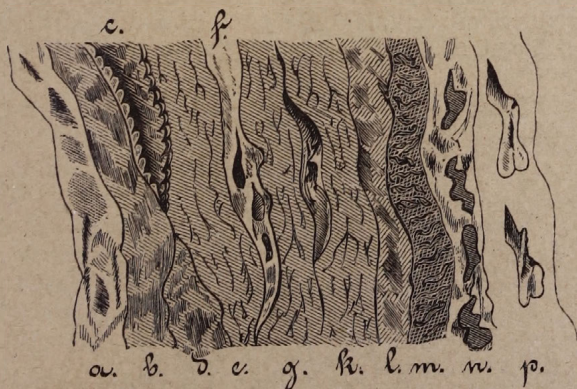 c. f.
a. b. d. e. g. k. l. m. n. p.